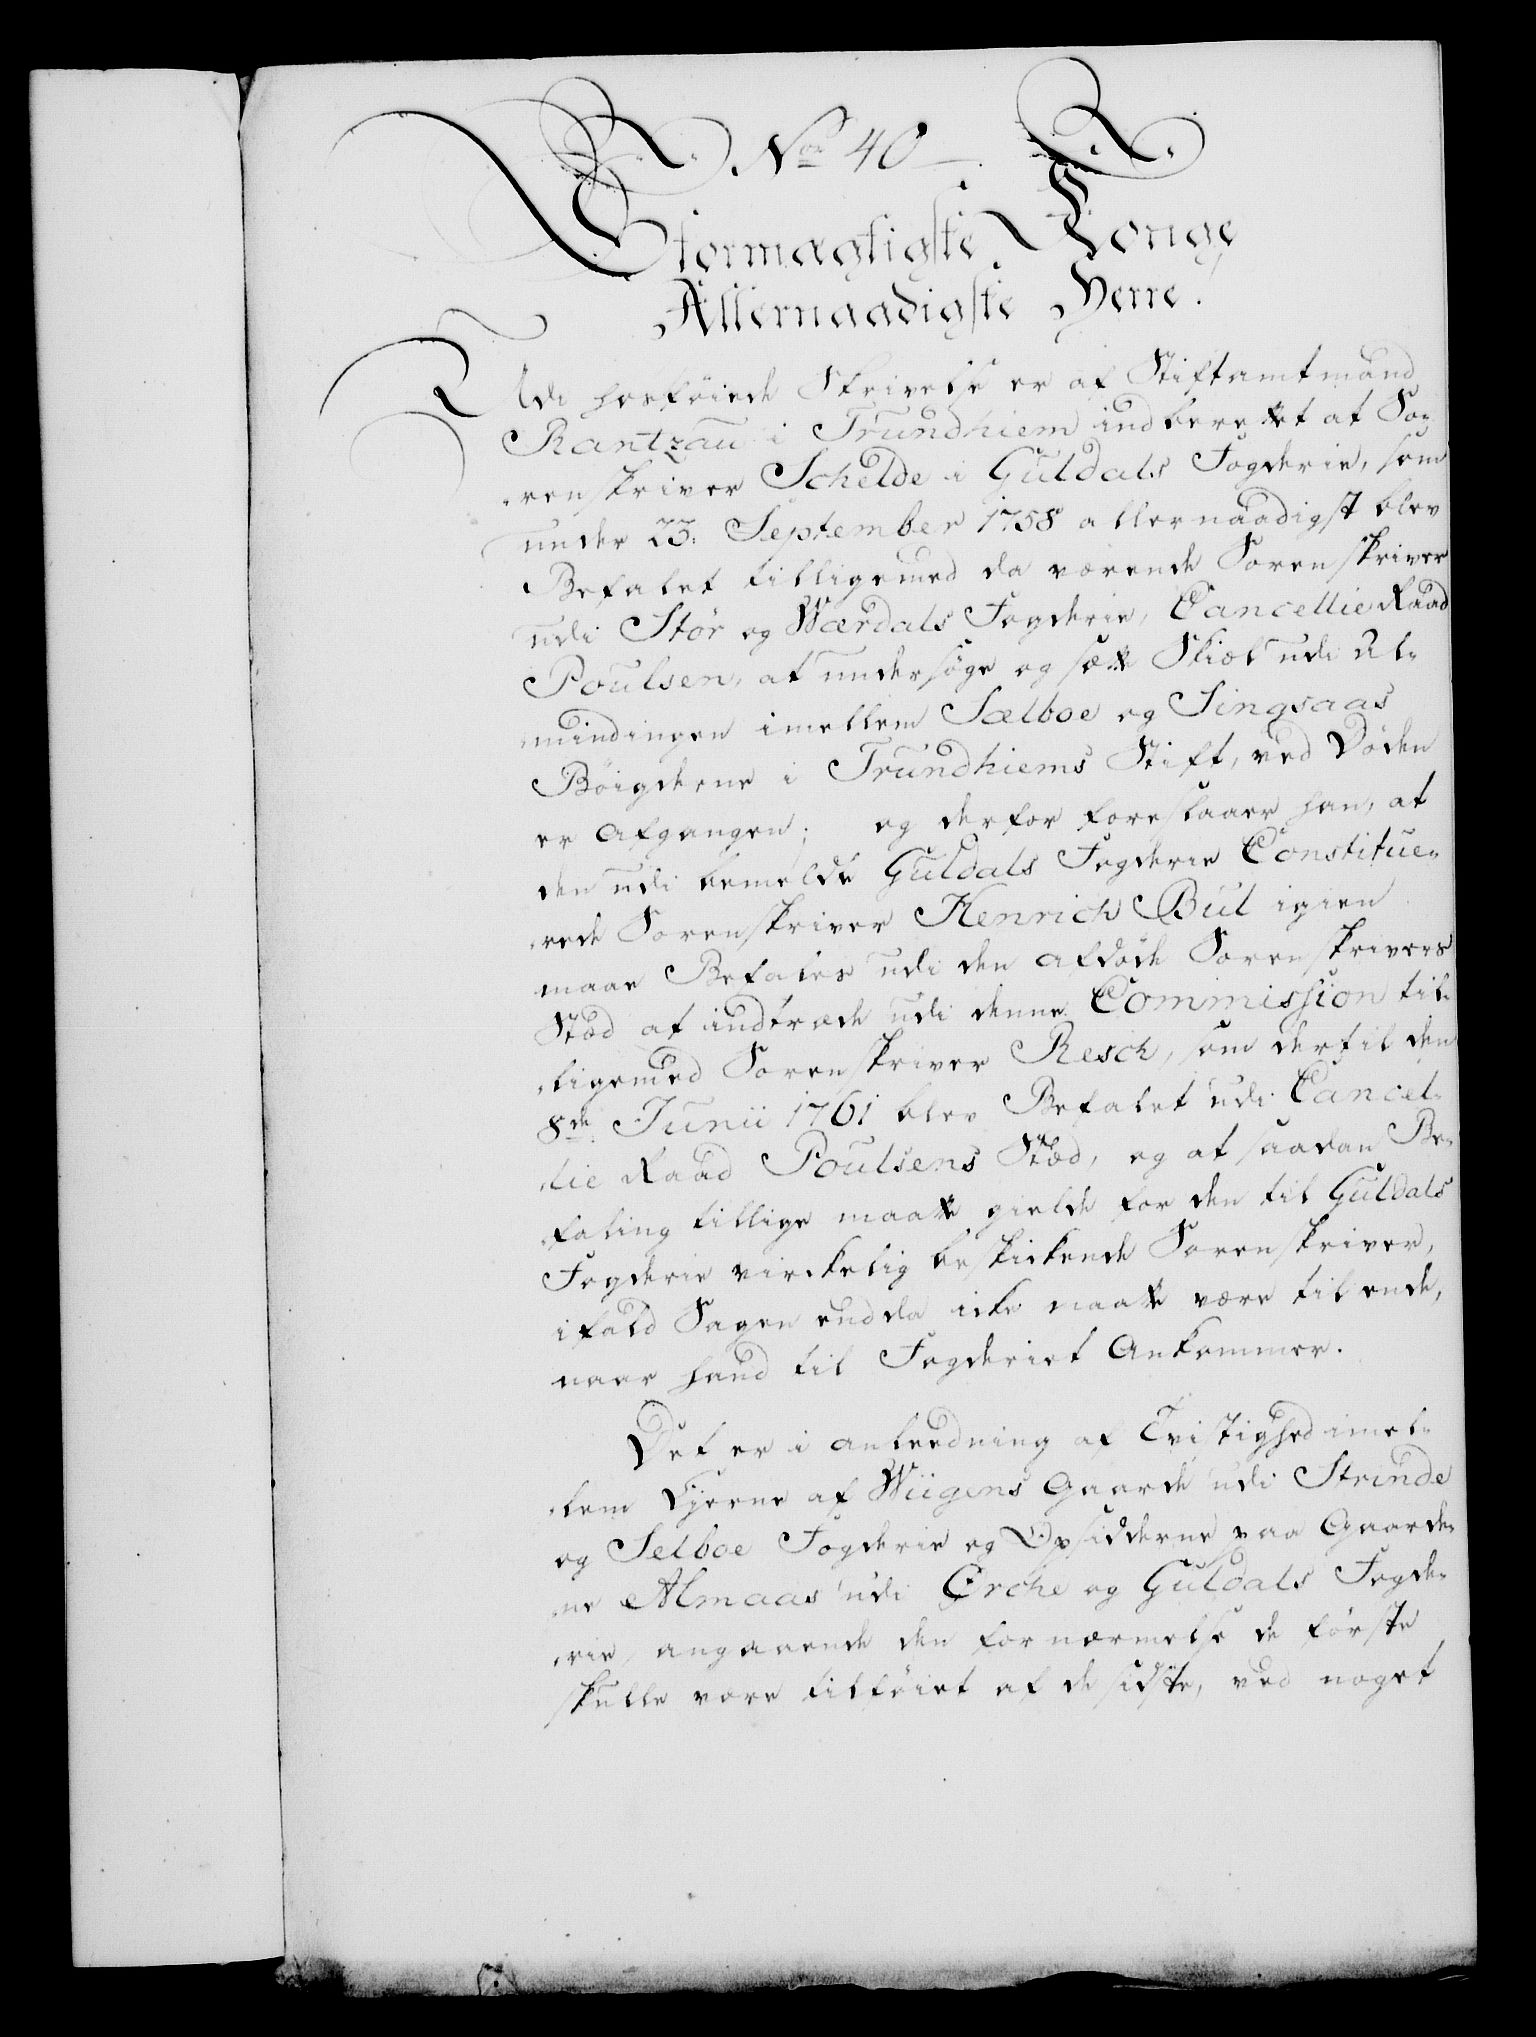 No 40
Stormægtigste Konge
Allernaadigste Herre.
Udi hosføiede Skrivelse er af Stiftamtmand
Rantzau i Trundhiem indberettet at So-
renskriver Schelde i Guldals Fogderie, som
under 23. September 1758 allernaadigst blev
Befalet tilligemed da værende Sorenskriver
udi Stør og Værdals Fogderie, Cancellie Raad
Poulsen, at undersøge og sætte Skiæl udi Al-
mindingen imellem Sælboe og Singsaas
Bøigderne i Trundhiems Stift, ved Døden
er afgangen; og derfor foreslaaer han, at
den udi bemeldte Guldals Fogderie Constitue-
rede Sorenskriver Henrich Bul igien
maae Befales udi den afdøde Sorenskrivers
Stæd at indtræde udi denne Commission til-
ligemed Sorenskriver Resch, som dertil den
8de Junii 1761 blev Befalet udi Cancel-
lie Raad Poulsens Stæd, og at saadan Be-
faling tillige maatte gielde for den til Guldals
Fogderie virckelig beskickende Sorenskriver,
ifald Sagen endda icke maatte være til ende,
naar hand til Fogderiet Ankommer.
Det er i anleedning af Tvistighed imel-
lem Ejerne af Wiigens Gaarde udi Strinde
og Selboe Fogderie og Opsidderne paa Gaarde-
ne Almaas udi Orche og Guldals Fogde-
rie, angaaende den fornærmelse de første
skulle være tilføiet af de sidste, ved noget